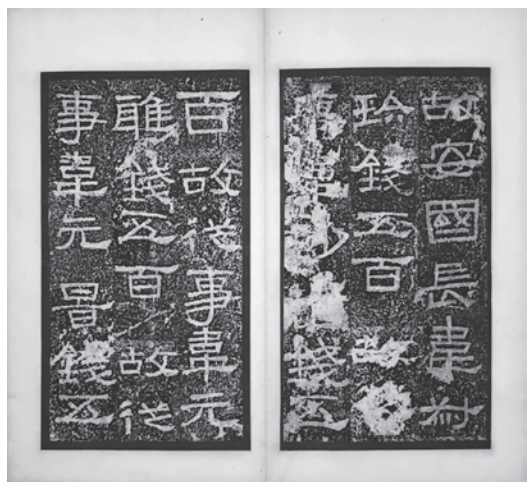 故安國長韋叔
珍錢五百 故
少 錢五
百 故從事韋元
雅錢五百 故從
事韋元 景錢五